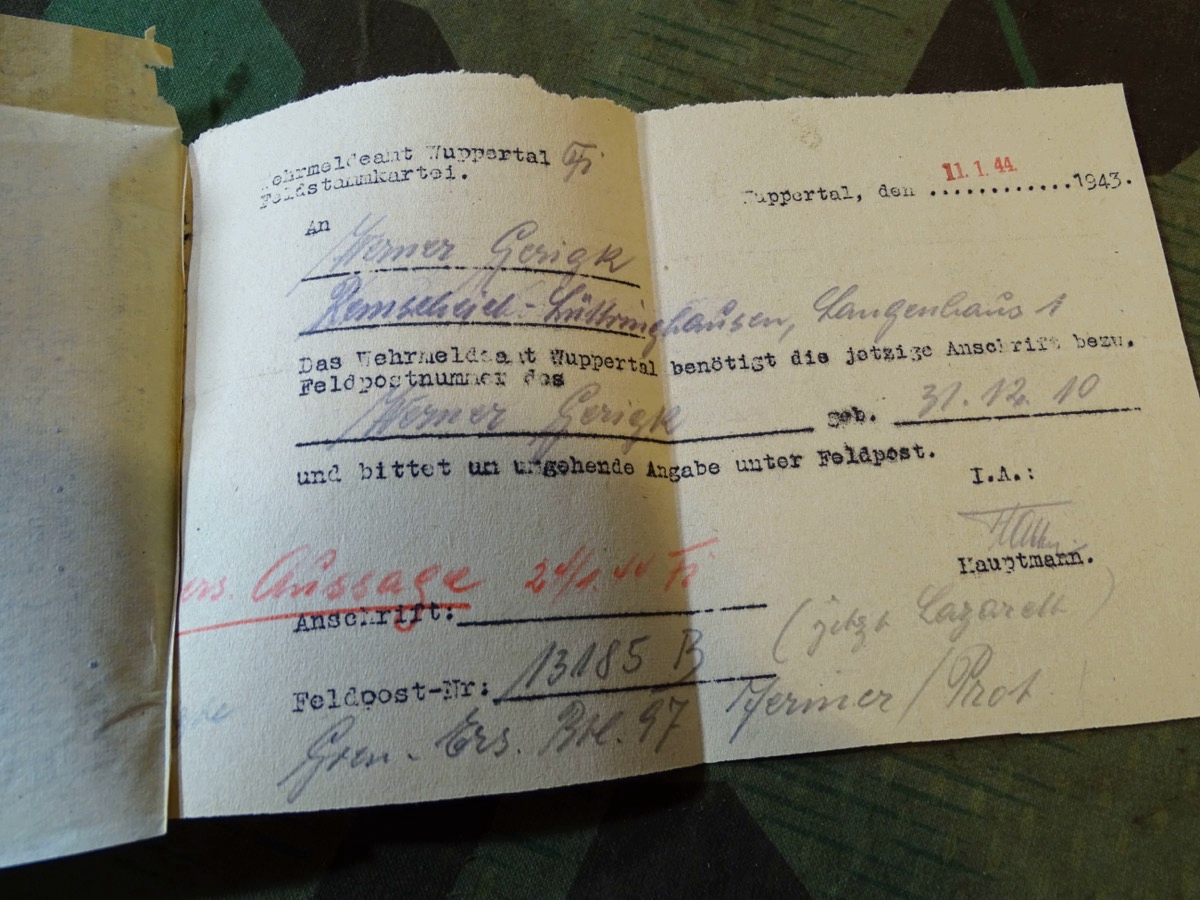 Wehrmeldeamt Wuppertal Fi
Feldstammkartei.
11.1.44.
Wuppertal, den ............1943.
An
Werner Gerigk
Remscheid-Lüttringhausen, Langenhaus 1
Das Wehrmeldeamt Wuppertal benötigt die jetzige Anschrift bezw.
Feldpostnummer des
Werner Gerigk geb. 31.12.10
und bittet um umgehende Angabe unter Feldpost.
I.A.:
Hauptmann.
pers. Aussage 24/1.44 Fi
Anschrift:
(jetzt Lazarett)
Feldpost-Nr: 13185 B
Gren. Ers. Btl. 97